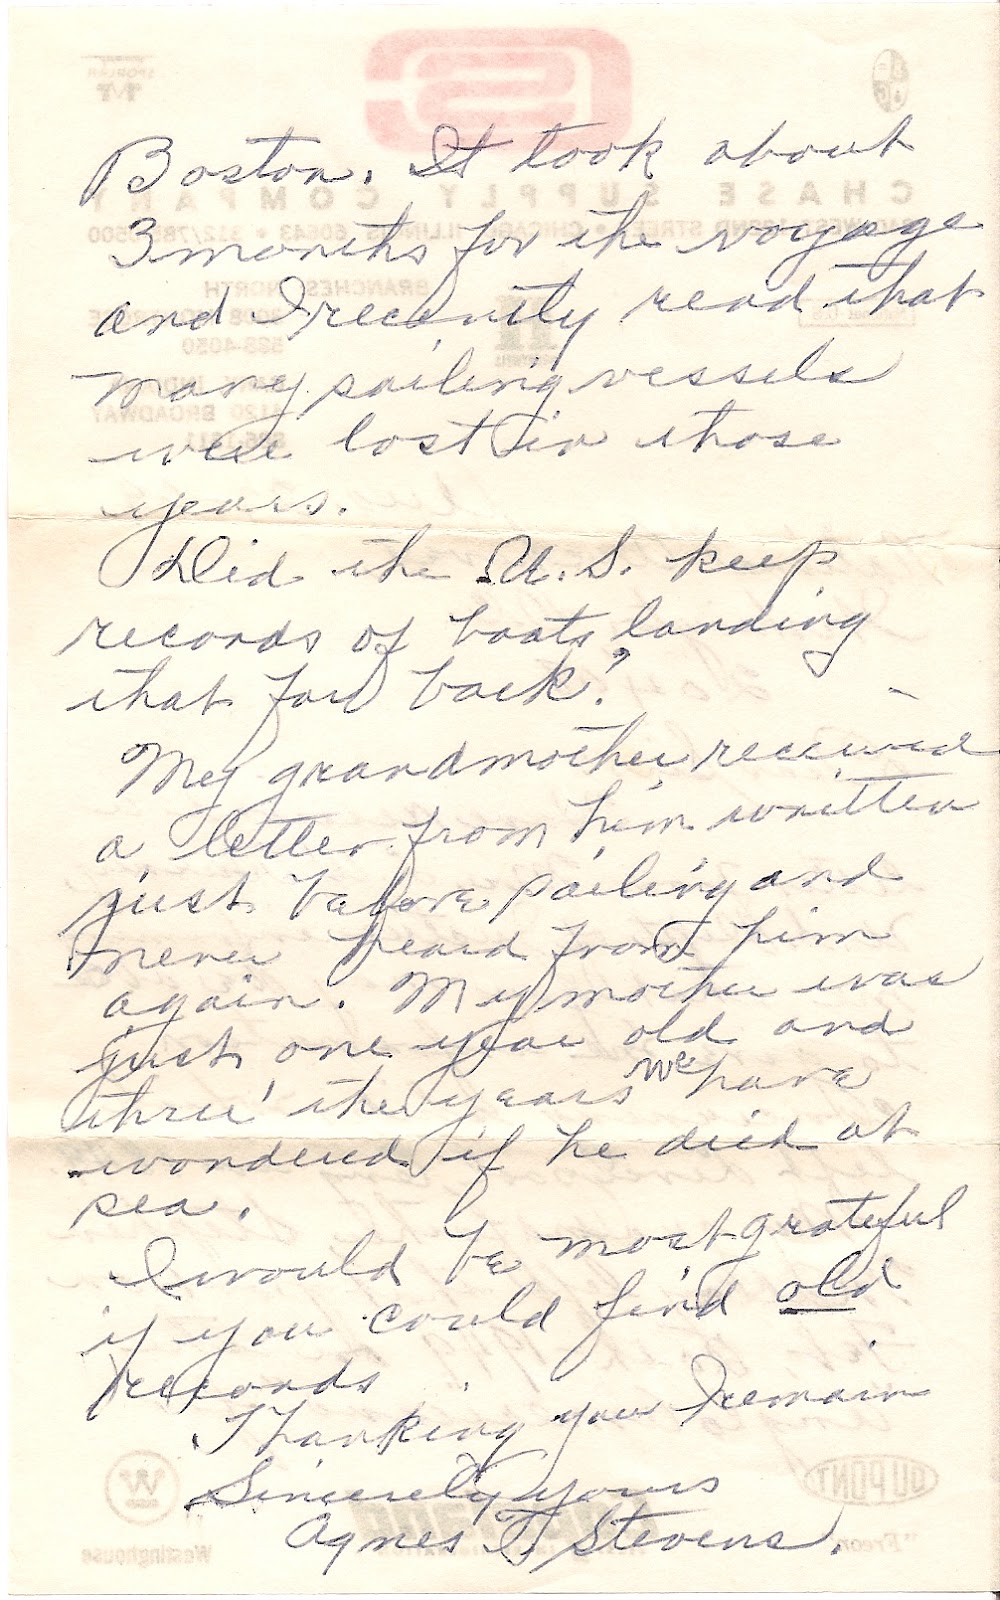 Boston. It took about
3 months for the voyage
and I recently read that
many sailing vessels
were lost in those
years.
Did the U.S. keep
records of boats landing
that far back?
My grandmother received
a letter from him written
just before sailing and
never heard from him
again. My mother was
just one year old and
thru' the years we have
wondered if he died at
sea.
I would be most grateful
if you could find old
records.
Thanking you I remain
Sincerely yours
Agnes T. Stevens.
CHASE SUPPLY COMPANY
STREET • CHICAGO, ILLINOIS 60643 • 312/785-0500
BRANCHES: NORTH
588-4050
BROADWAY
SPORLAN
DUPONT
"Freon"
Westinghouse